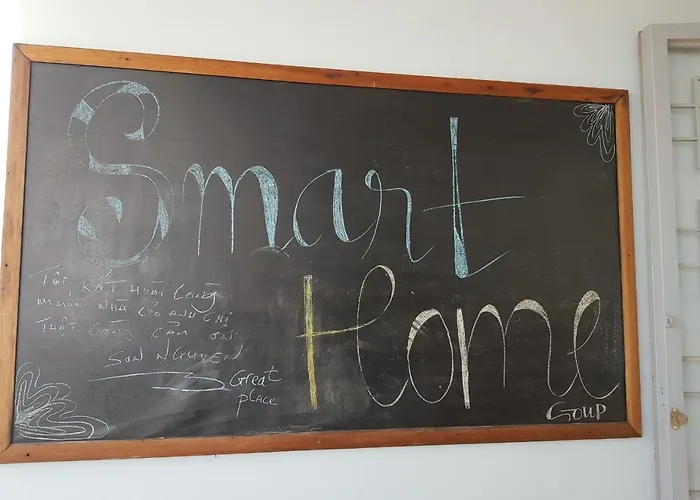 Smart
Home
GOUP
TÔI RẤT HOÀI LONG
NHÀ CHO ANH CHỊ
THẬT LONG CẢM ƠN
SON NGUYEN
Great
place